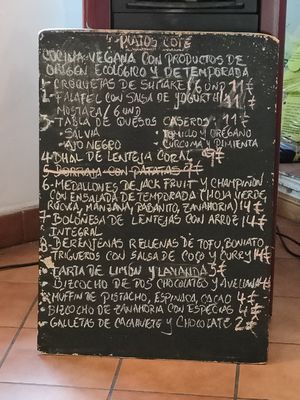 PLATOS COTÉ
COCINA VEGANA CON PRODUCTOS DE
ORIGEN ECOLÓGICO Y DE TEMPORADA
1-CROQUETAS DE SHITAKE (6 UND) 11€
2-FALAFEL CON SALSA DE YOGURTH/
MOSTAZA 6 UND 11€
3-TABLA DE QUESOS CASEROS 11€
-SALVIA TOMILLO Y ORÉGANO
-AJO NEGRO CÚRCUMA Y PIMIENTA
4-DHAL DE LENTEJA CORAL 9€
5-BORRAJA CON PATATAS 9€
6-MEDALLONES DE JACK FRUIT Y CHAMPIÑÓN
CON ENSALADA DE TEMPORADA (HOJA VERDE
RÚCULA, MANZANA, RABANITO, ZANAHORIA) 14€
7-BOLOÑESA DE LENTEJAS CON ARROZ 14€
INTEGRAL
8-BERENJENAS RELLENAS DE TOFU, BONIATO
TRIGUEROS CON SALSA DE COCO Y CURRY 14€
-TARTA DE LIMÓN Y LAVANDA 5€
-BIZCOCHO DE DOS CHOCOLATES Y AVELLANA 4€
-MUFFIN DE PISTACHO, ESPINACA, CACAO 4€
-BIZCOCHO DE ZANAHORIA CON ESPECIAS 4€
-GALLETAS DE CACAHUETE Y CHOCOLATE 2€